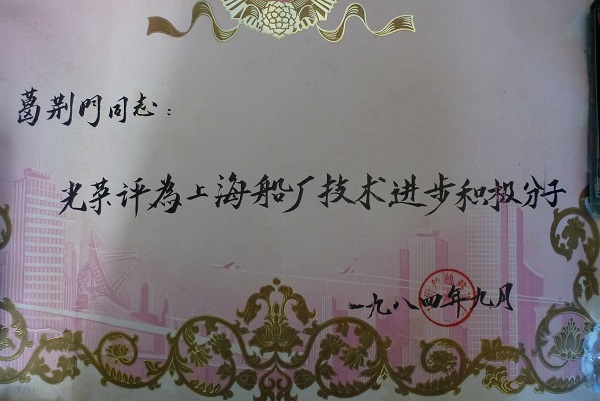 葛荆門同志：
光荣评為上海船厂技术进步积极分子
一九八四年九月